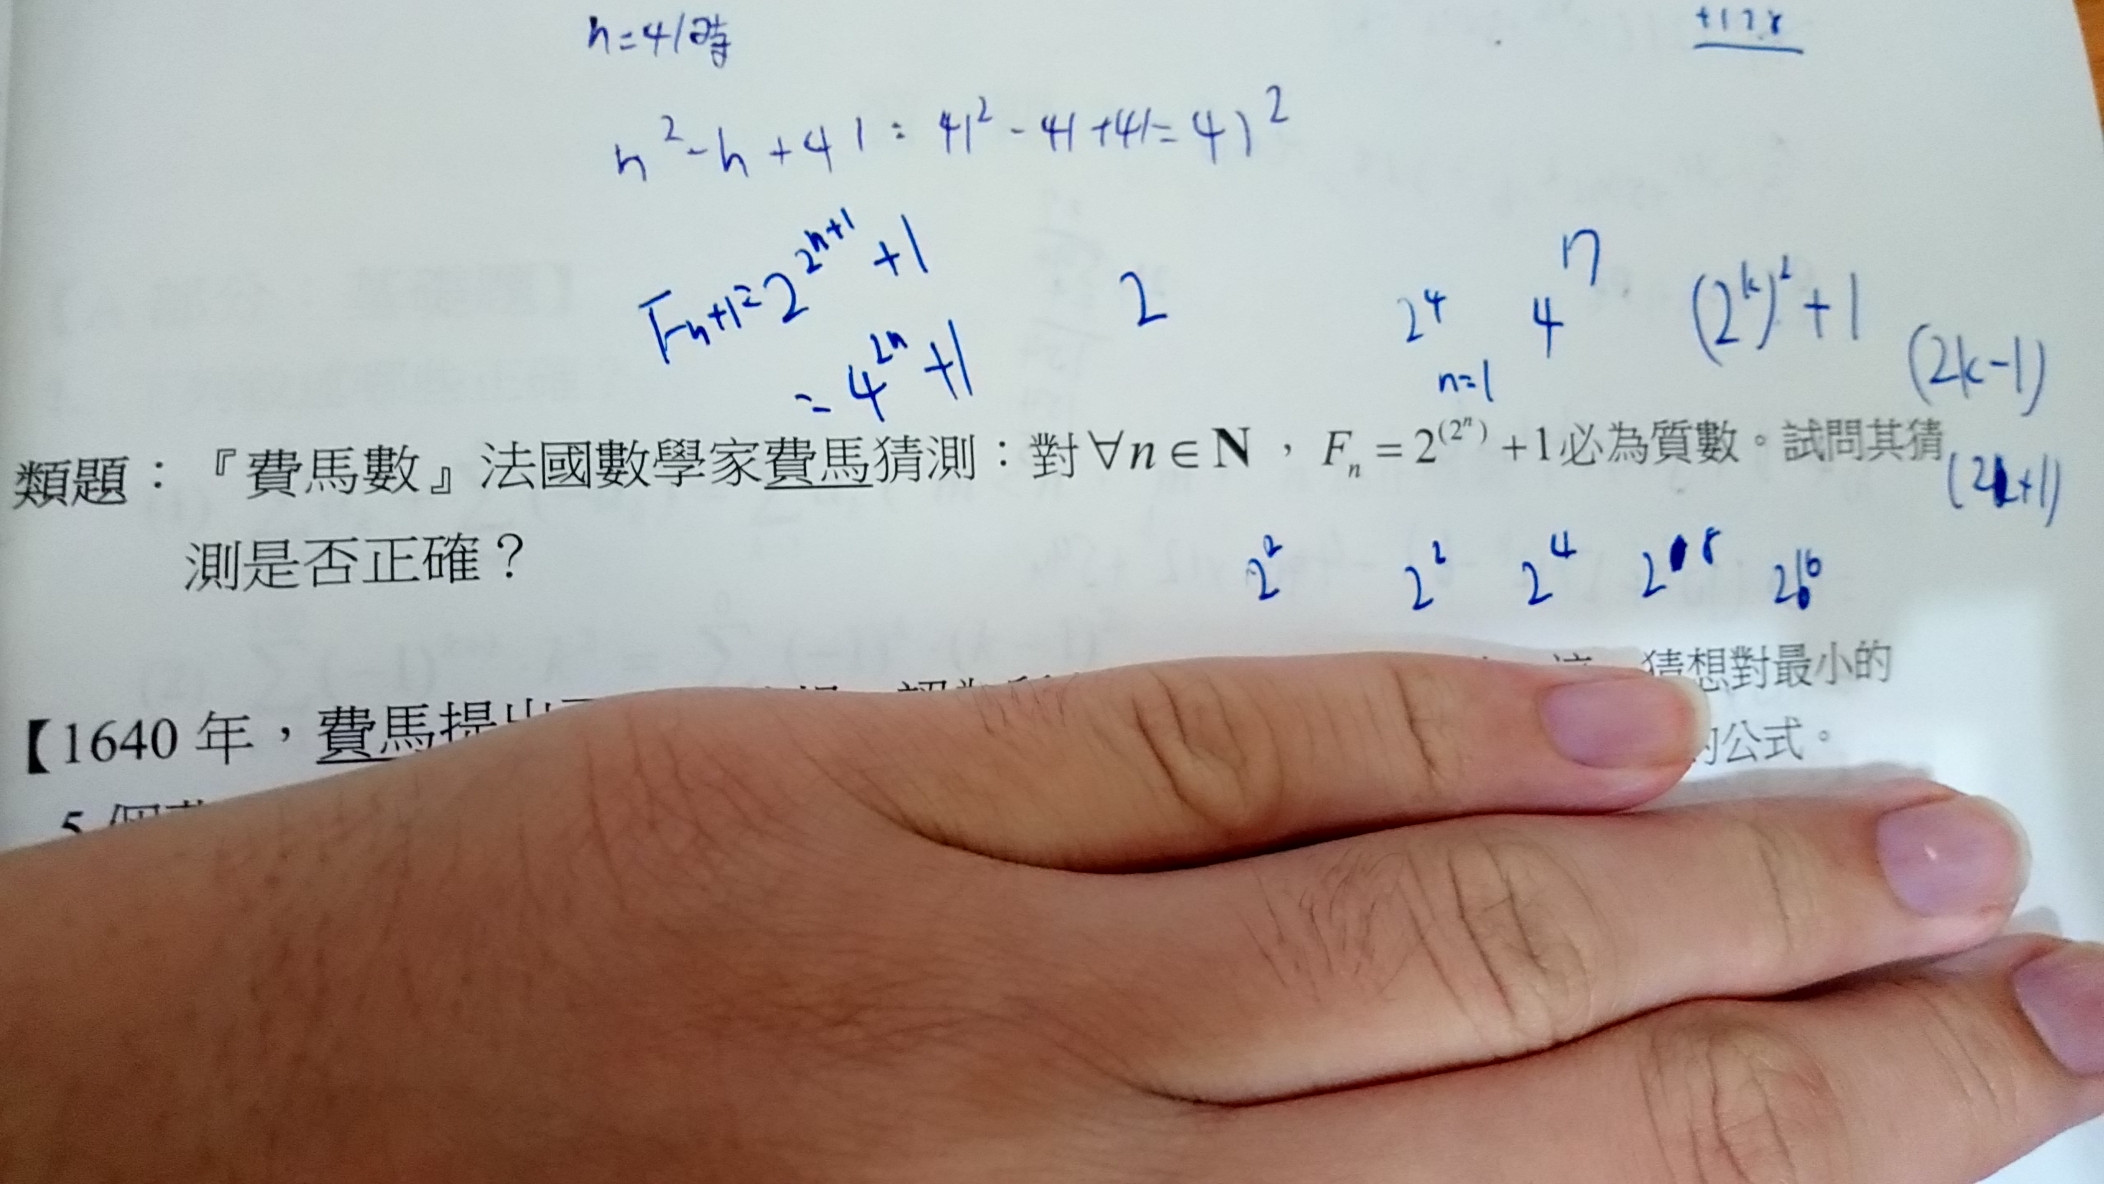 n=41時
+128
n²-n+41=41²-41+41=41²
Fn+1=2^2^n+1 +1
=4^2^n +1
2
2⁴
n=1
4^n
(2^k)²+1
(2k-1)
(2k+1)
類題：『費馬數』法國數學家費馬猜測：對∀n∈N，Fₙ=2^(2^n)+1必為質數。試問其猜
測是否正確？
2² 2² 2⁴ 2⁸ 2¹⁶
猜想對最小的
【1640 年，費馬提出
的公式。
5 個